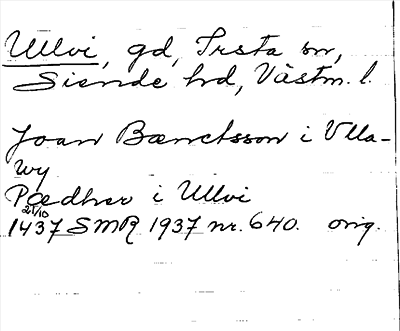 Ullvi, gd, Irsta sn,
Siende hd, Västm. l.
Joan Bænctsson i Vlla-
wy
Pædher i Ullvi
21/10
1437 SMR 1937 nr. 640. orig.